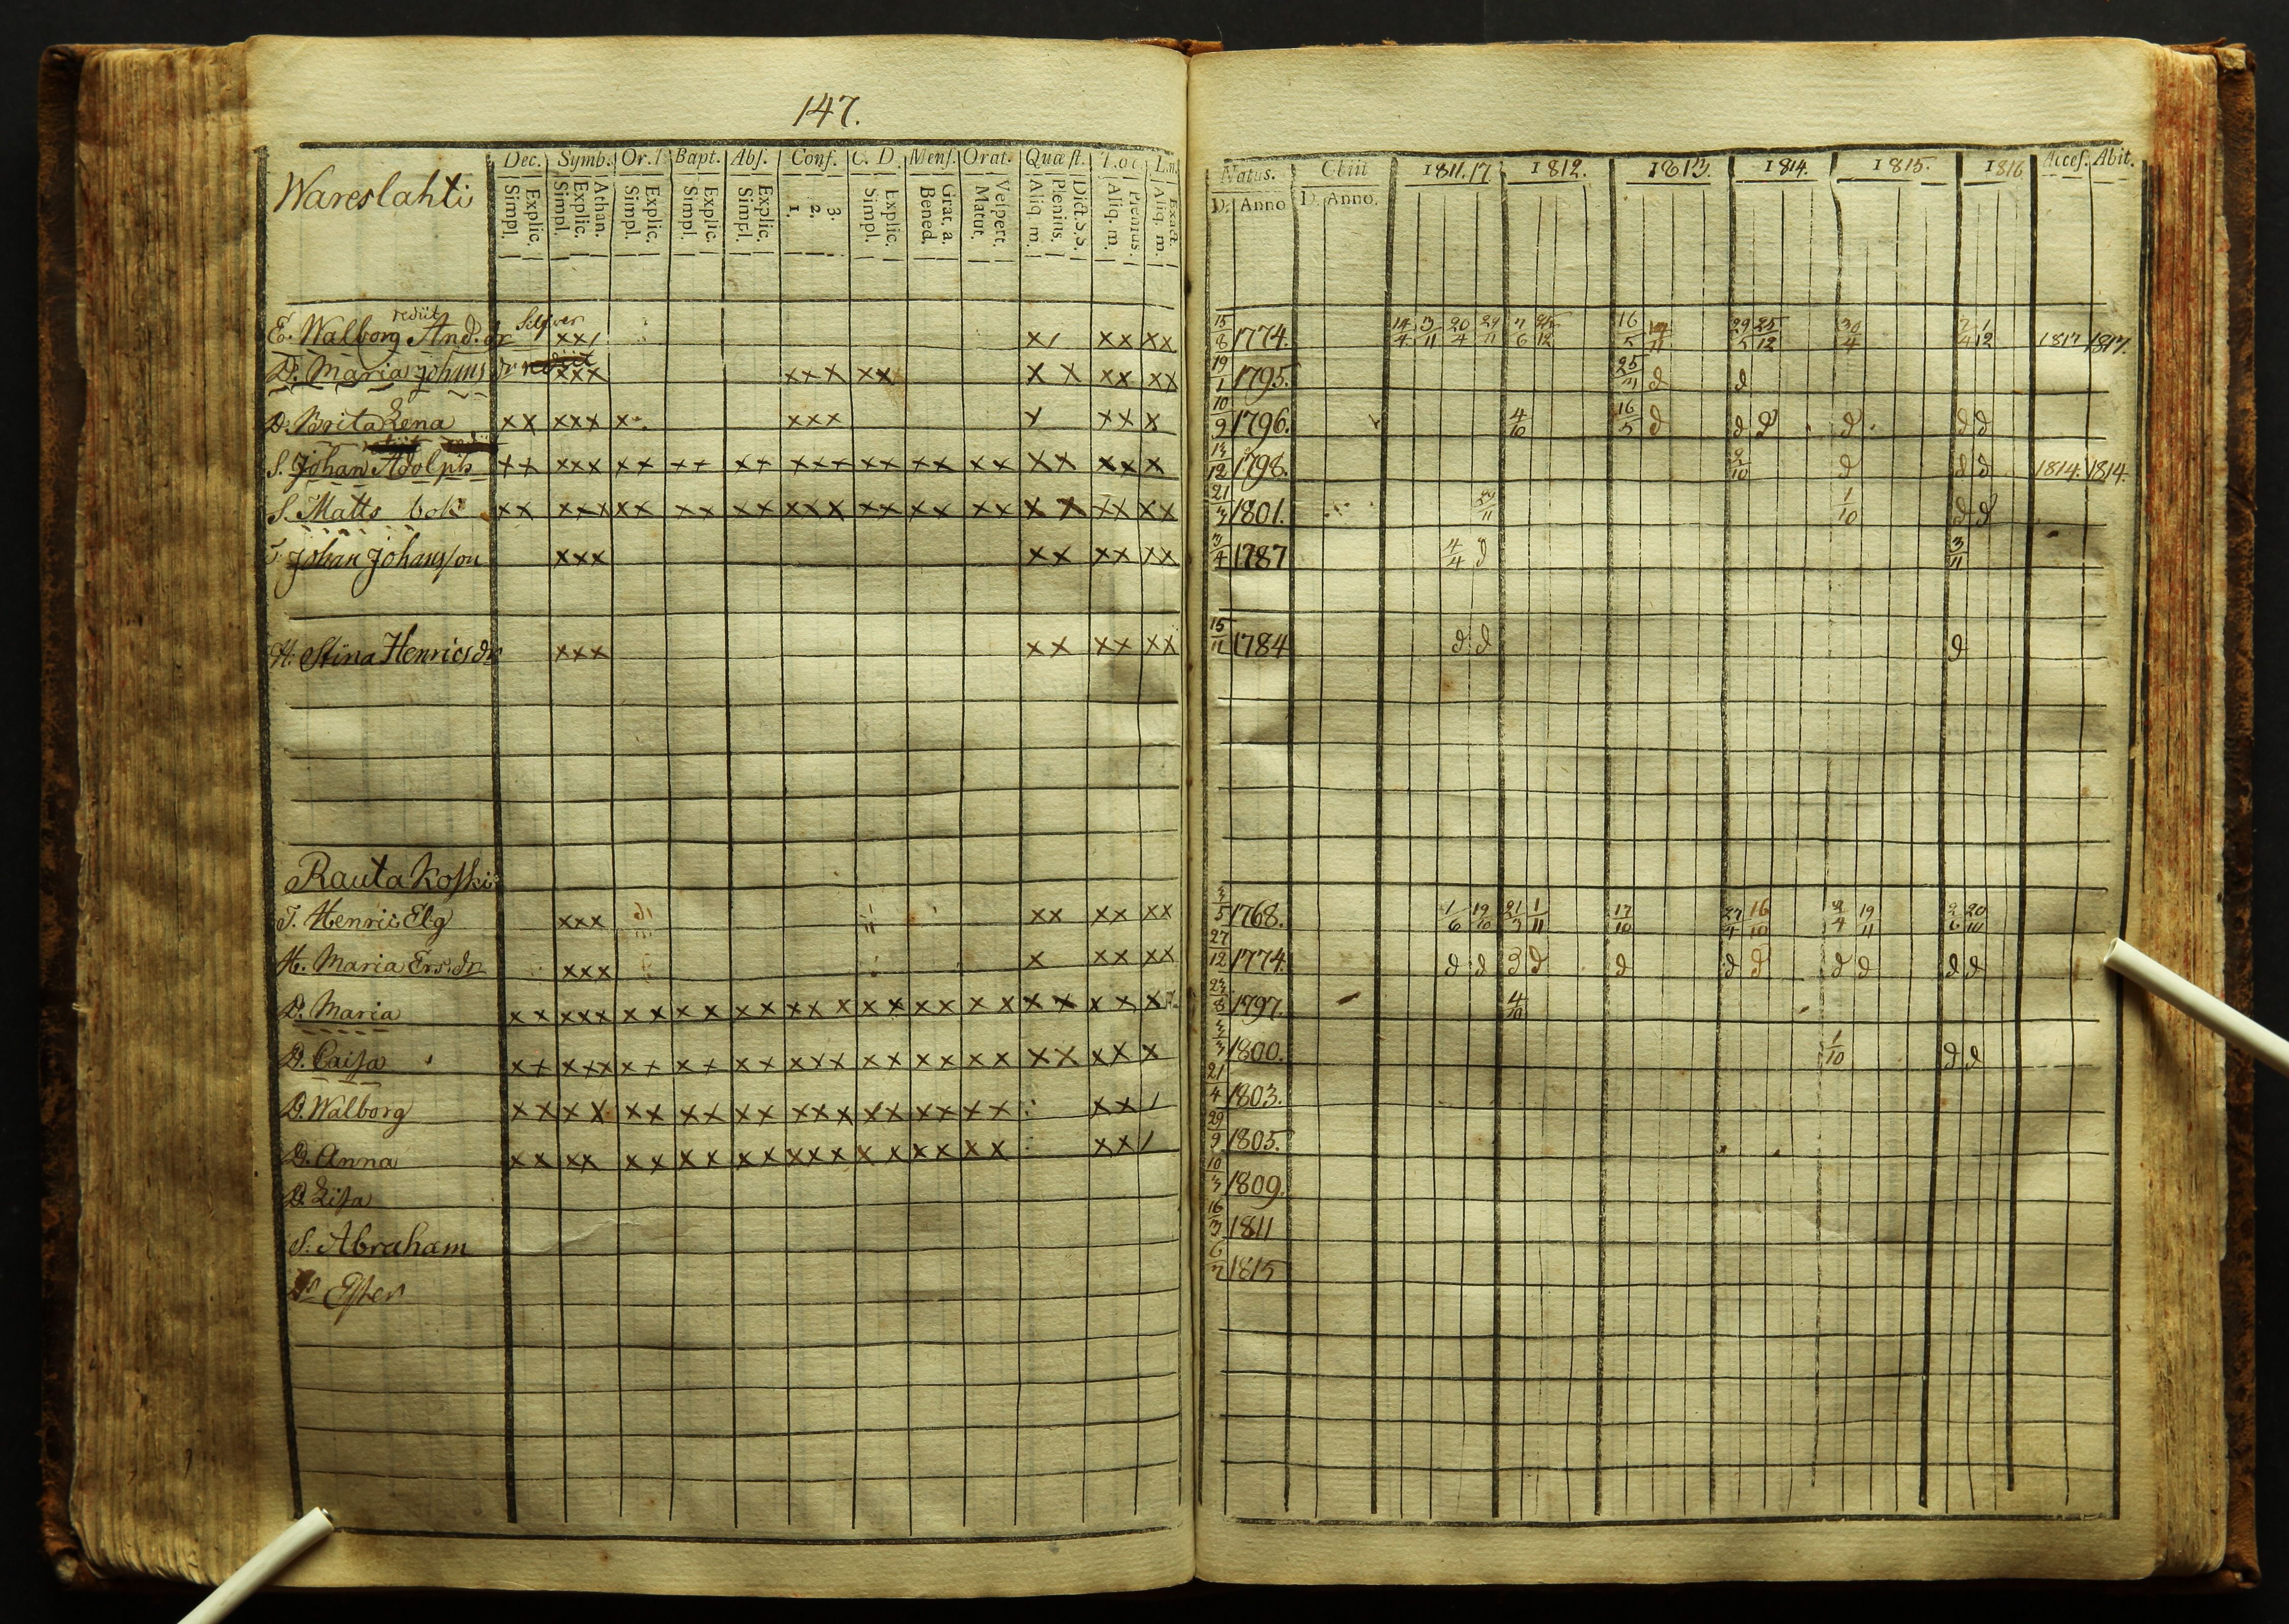 147.
Wareslahti
Dec. Symb. Or. Bapt. Abſ. Conf. C. D. Menſ. Orat. Quæſt.
Explic. Simpl. Athan. Explic. Simpl. Explic. Simpl. Explic. Simpl. Explic. Simpl. 3. 2. 1. Explic. Simpl. Grat. a. Bened. Veſpert. Matut. Dict. S.S. Plenius. Aliq. m. Plenius. Aliq. m. Exact. Aliq. m.
Natus. Obiit 1811.17 1812. 1813. 1814. 1815. 1816 Acceſ. Abit.
D. Anno D. Anno.
rediit
E. Walborg And. dr xx/ x/ xx xx 15/8 1774. 1817 1817.
D. Maria Johans dr rediit xxx xxx xx x x xx xx 19/1 1795. 25/3 d d
D. Brita Lena xx xxx x xxx x xx x 10/9 1796. 4/10 16/5 d d d d d d
S. Johan Adolph xx xxx xx xx xx xxx xx xx xx xx xxx x 13/12 1798. 2/10 d d d 1814. 1814.
S. Matts bok xx xxx xx xx xx xxx xx xx xx x x xx xx 21/3 1801. 1/10 d d
Johan Johansson xxx xx xx xx 3/4 1787 4/4 d 3/11
H. Stina Henricsdr xxx xx xx xx 15/11 1784 d d d
Rautakoſki
T. Henric Elg xxx xx xx xx 3/5 1768. 1/6 19/10 21/3 1/11 17/10 27/4 16/10 2/4 19/11 2/6 20/10
H. Maria Ers. dr xxx x xx xx 27/12 1774. d d d d d d d d d d d
D. Maria xx xxx xx xx xx xx x xx xx xx xx x x x 23/8 1797. 4/10
D. Caiſa xx xxx xx xx xx xxx xx xx xx xx xx x 3/3 1800. 1/10 d d
D. Walborg xx xx xx xx xx xxx xx xx xx xx/ 21/4 1803.
D. Anna xx xx xx xx xx xxx x x xx xx xx/ 29/9 1805.
D. Liſa 10/3 1809.
S. Abraham 16/3 1811
Eſter 6/7 1815